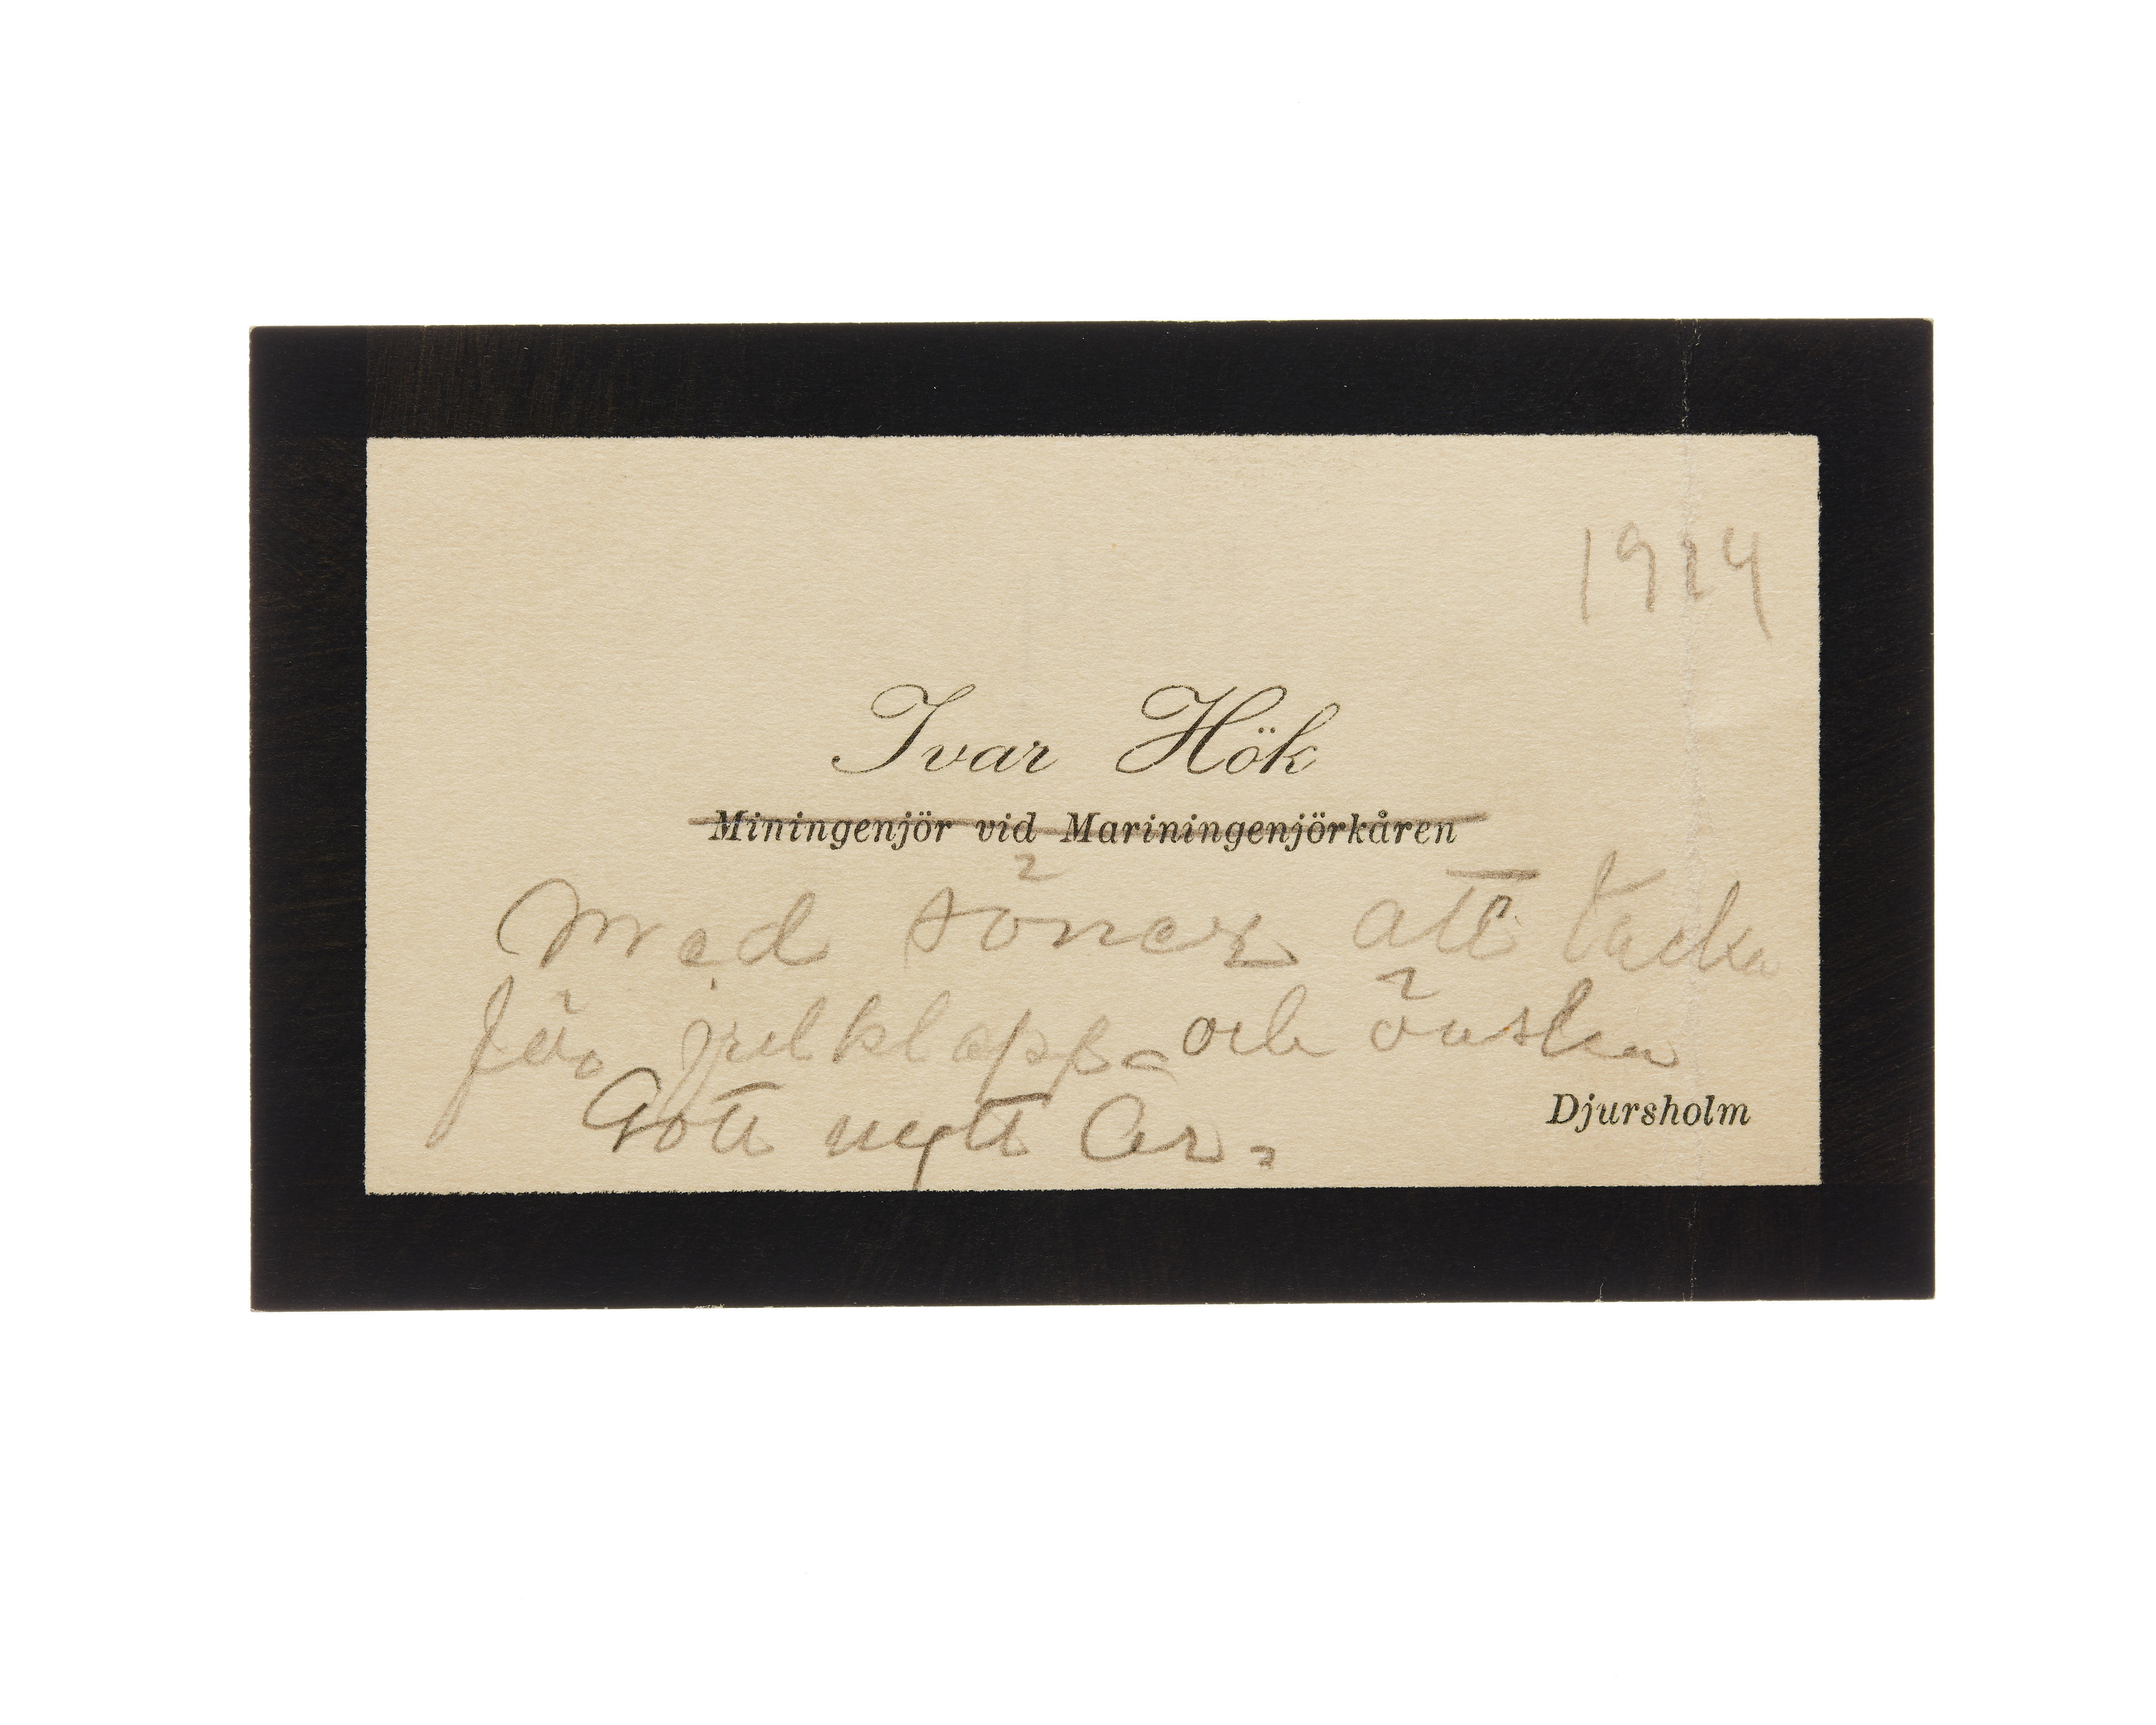 1914
Ivar Hök
Miningenjör vid Mariningenjörkåren
Med söner att tacka
för julklappa och önska
Gott nytt år.
Djursholm